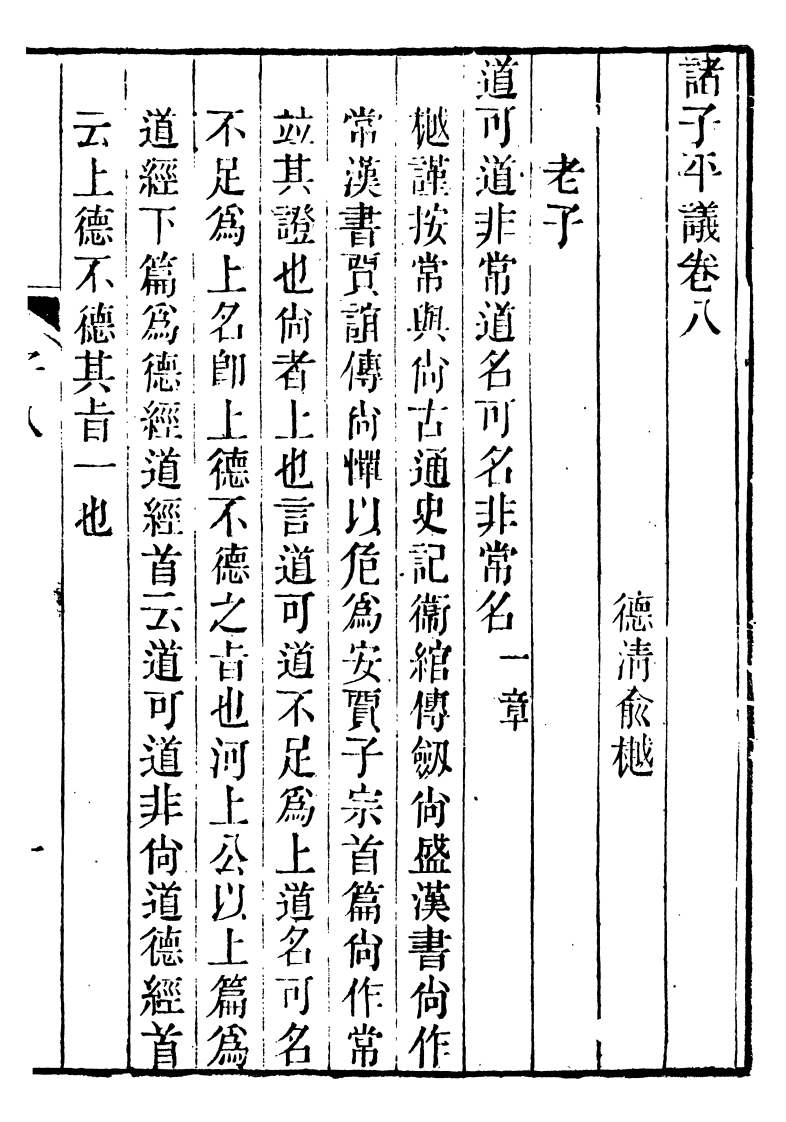 諸子平議卷八
德清俞樾
老子
道可道非常道名可名非常名一章
樾謹按常與尙古通史記衞綰傳劒尙盛漢書尙作
常漢書賈誼傳尙憚以危爲安賈子宗首篇尙作常
竝其證也尙者上也言道可道不足爲上道名可名
不足爲上名卽上德不德之旨也河上公以上篇爲
道經下篇爲德經道經首云道可道非尙道德經首
云上德不德其旨一也